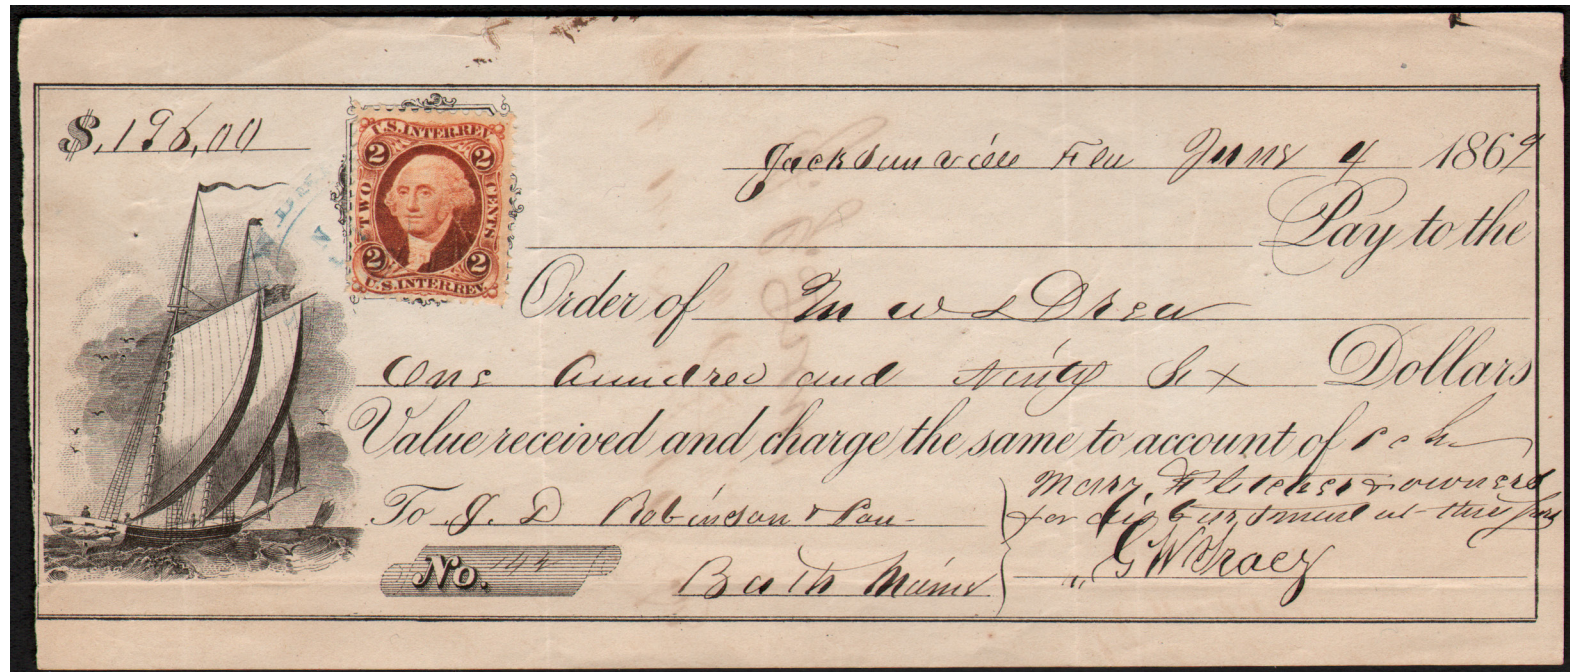 $ 196,00
U.S. INTER. REV.
2 2
TWO CENTS
2 2
U.S. INTER. REV.
Jacksonville Fla June 4 1869
Pay to the
Order of M W & Drew
One hundred and Ninty Six Dollars
Value received and charge the same to account of Sch
Mary Fletcher & owners
To J. D Robinson & for disbursment at this port
No. 44 Bath Maine G W Tracy